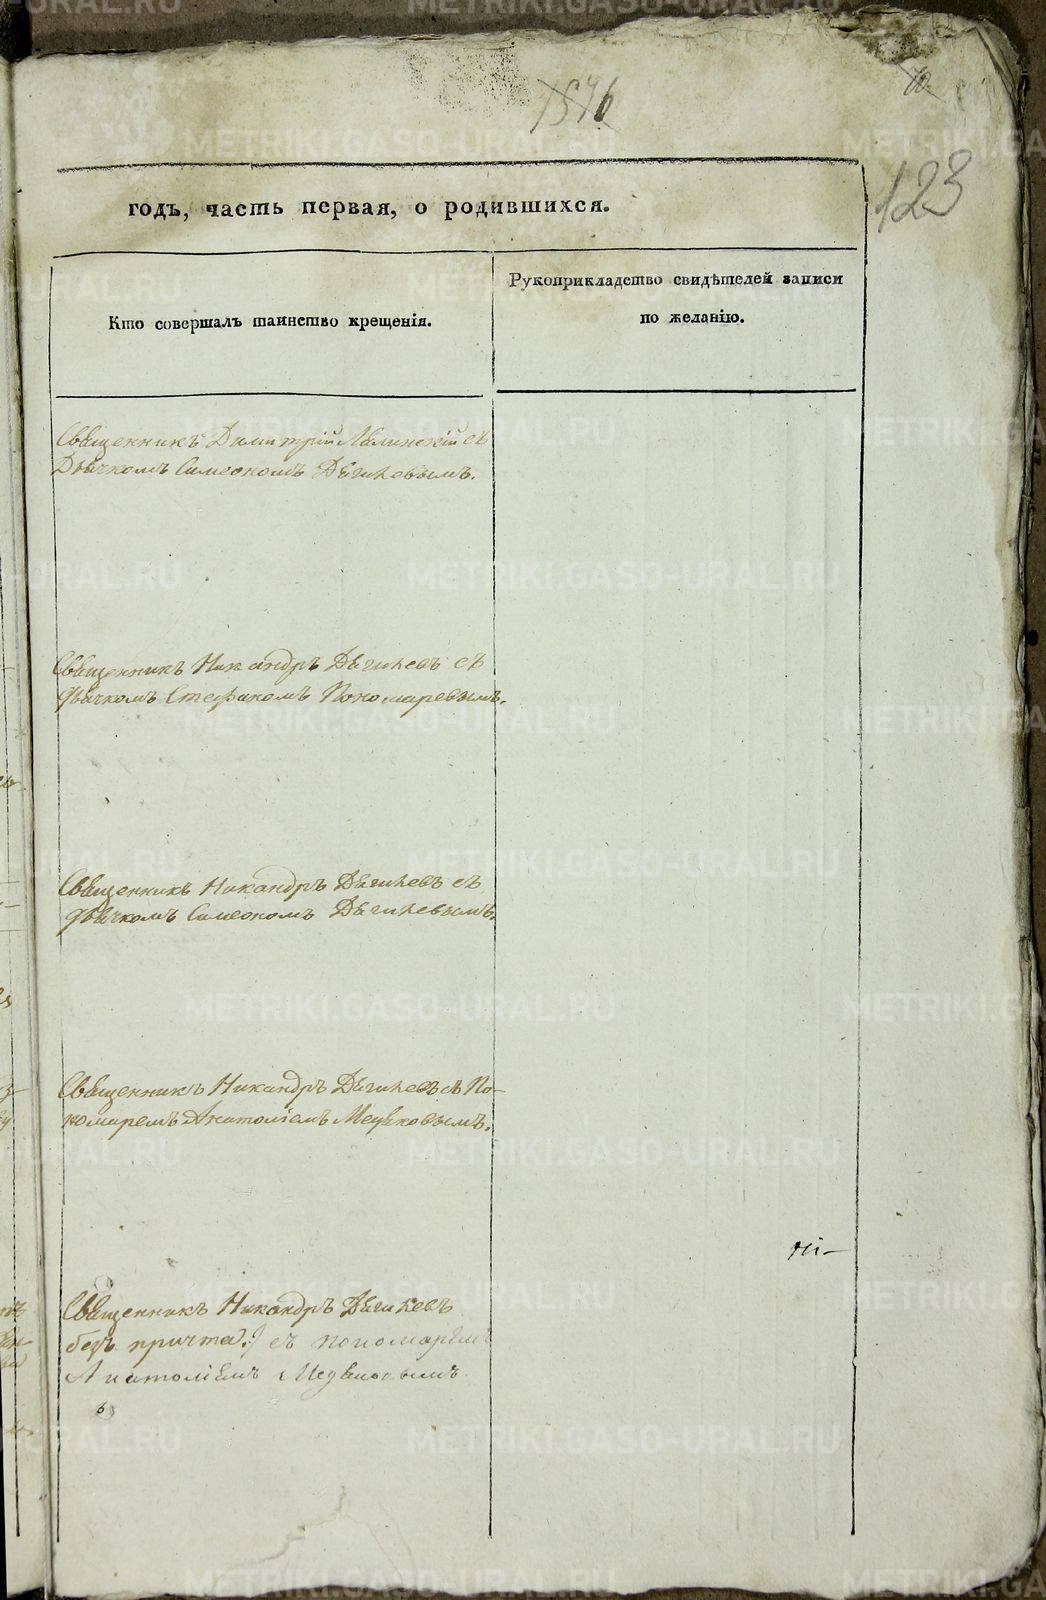 1576
123
годъ, часть первая, о родившихся.
Кто совершалъ таинство крещенія.
Рукоприкладство свидѣтелей записи
по желанію.
Священникъ Димитрій съ
Дьячкомъ Симеономъ Дягилевымъ.
Священникъ Никандръ Дягилевъ съ
дьячкомъ Стефаномъ Пономаревымъ.
Священникъ Никандръ Дягилевъ съ
дьячкомъ Симеономъ Дягилевымъ.
Священникъ Никандръ Дягилевъ съ По-
номаремъ Анатоліемъ
ні-
Священникъ Никандръ Дягилевъ
безъ причта. съ пономаремъ
Анатоліемъ
METRIKI.GASO-URAL.RU